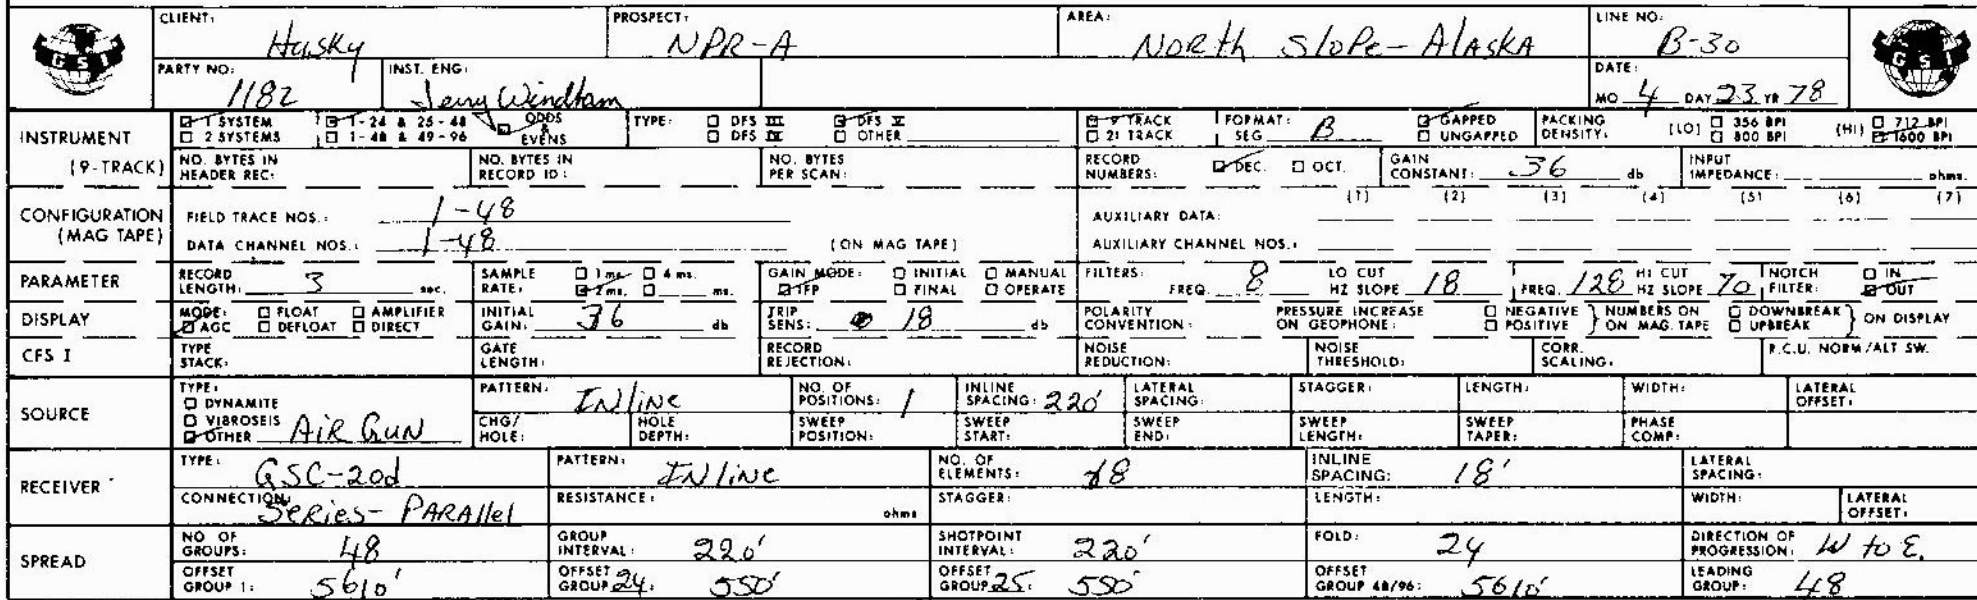 CLIENT: Husky PROSPECT: NPR-A AREA: North Slope-Alaska LINE NO: B-30
GSI GSI
PARTY NO: 1182 INST. ENG: Jerry Windham DATE: MO 4 DAY 23 YR 78
INSTRUMENT (9-TRACK)
☑ 1 SYSTEM ☑ 1-24 & 25-48 ☑ ODDS & EVENS TYPE: ☐ DFS III ☑ DFS V ☑ 9 TRACK FORMAT: SEG B ☑ GAPPED PACKING DENSITY: (LO) ☐ 356 BPI (HI) ☐ 712 BPI
☐ 2 SYSTEMS ☐ 1-48 & 49-96 ☐ DFS IV ☐ OTHER ☐ 21 TRACK ☐ UNGAPPED ☐ 800 BPI ☑ 1600 BPI
NO. BYTES IN HEADER REC: NO. BYTES IN RECORD ID: NO. BYTES PER SCAN: RECORD NUMBERS: ☑ DEC. ☐ OCT. GAIN CONSTANT: 36 db INPUT IMPEDANCE: ohms.
CONFIGURATION (MAG TAPE)
(1) (2) (3) (4) (5) (6) (7)
FIELD TRACE NOS.: 1-48 AUXILIARY DATA:
DATA CHANNEL NOS.: 1-48 (ON MAG TAPE) AUXILIARY CHANNEL NOS.:
PARAMETER RECORD LENGTH: 3 sec. SAMPLE RATE: ☐ 1 ms. ☐ 4 ms. ☑ 2 ms. ☐ ms. GAIN MODE: ☐ INITIAL ☐ MANUAL ☑ IFP ☐ FINAL ☐ OPERATE FILTERS: FREQ. 8 LO CUT HZ SLOPE 18 FREQ. 128 HI CUT HZ SLOPE 70 NOTCH FILTER: ☐ IN ☑ OUT
DISPLAY MODE: ☐ FLOAT ☐ AMPLIFIER ☑ AGC ☐ DEFLOAT ☐ DIRECT INITIAL GAIN: 36 db TRIP SENS: 18 db POLARITY CONVENTION: PRESSURE INCREASE ON GEOPHONE: ☐ NEGATIVE ☐ POSITIVE } NUMBERS ON ON MAG. TAPE ☐ DOWNBREAK ☐ UPBREAK } ON DISPLAY
CFS I TYPE STACK: GATE LENGTH: RECORD REJECTION: NOISE REDUCTION: NOISE THRESHOLD: CORR. SCALING: R.C.U. NORM/ALT SW.
SOURCE TYPE: ☐ DYNAMITE ☐ VIBROSEIS ☑ OTHER Air Gun
PATTERN: INline NO. OF POSITIONS: 1 INLINE SPACING: 220' LATERAL SPACING: STAGGER: LENGTH: WIDTH: LATERAL OFFSET:
CHG/HOLE: HOLE DEPTH: SWEEP POSITION: SWEEP START: SWEEP END: SWEEP LENGTH: SWEEP TAPER: PHASE COMP:
RECEIVER TYPE: GSC-20d PATTERN: INline NO. OF ELEMENTS: 18 INLINE SPACING: 18' LATERAL SPACING:
CONNECTION: Series-Parallel RESISTANCE: ohms STAGGER: LENGTH: WIDTH: LATERAL OFFSET:
SPREAD NO OF GROUPS: 48 GROUP INTERVAL: 220' SHOTPOINT INTERVAL: 220' FOLD: 24 DIRECTION OF PROGRESSION: W to E.
OFFSET GROUP 1: 5610' OFFSET GROUP 24: 550' OFFSET GROUP 25: 550' OFFSET GROUP 48/96: 5610' LEADING GROUP: 48